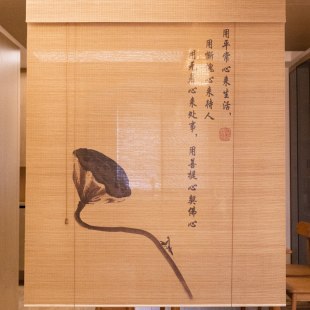 用平常心来生活，
用惭愧心来待人
用菩萨心来处事，用菩提心契佛心